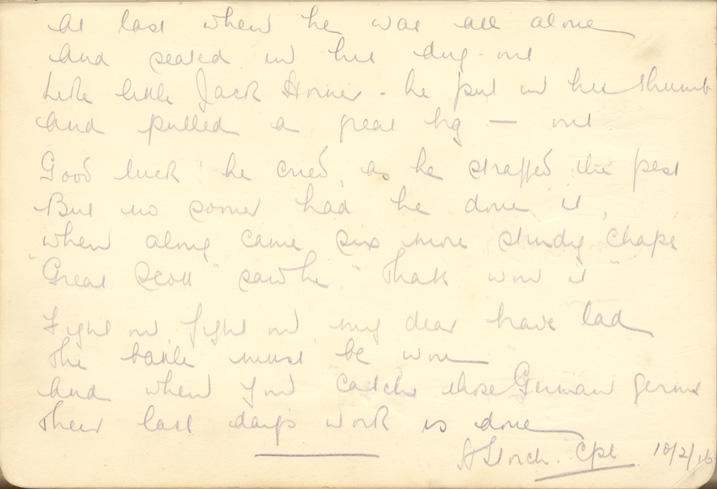 At last when he was all alone
And seated in his dug-out
Like little Jack Horner - he put in his thumb
And pulled a great big — out
Good luck he cried, as he straffed the pest
But no sooner had he done it,
when along came six more sturdy chaps
"Great Scott" saw he "That's won it"
Fight on, fight on, my dear brave lad
The battle must be won
And when you catch those German germs
Their last days work is done
Cpl. 10/2/16